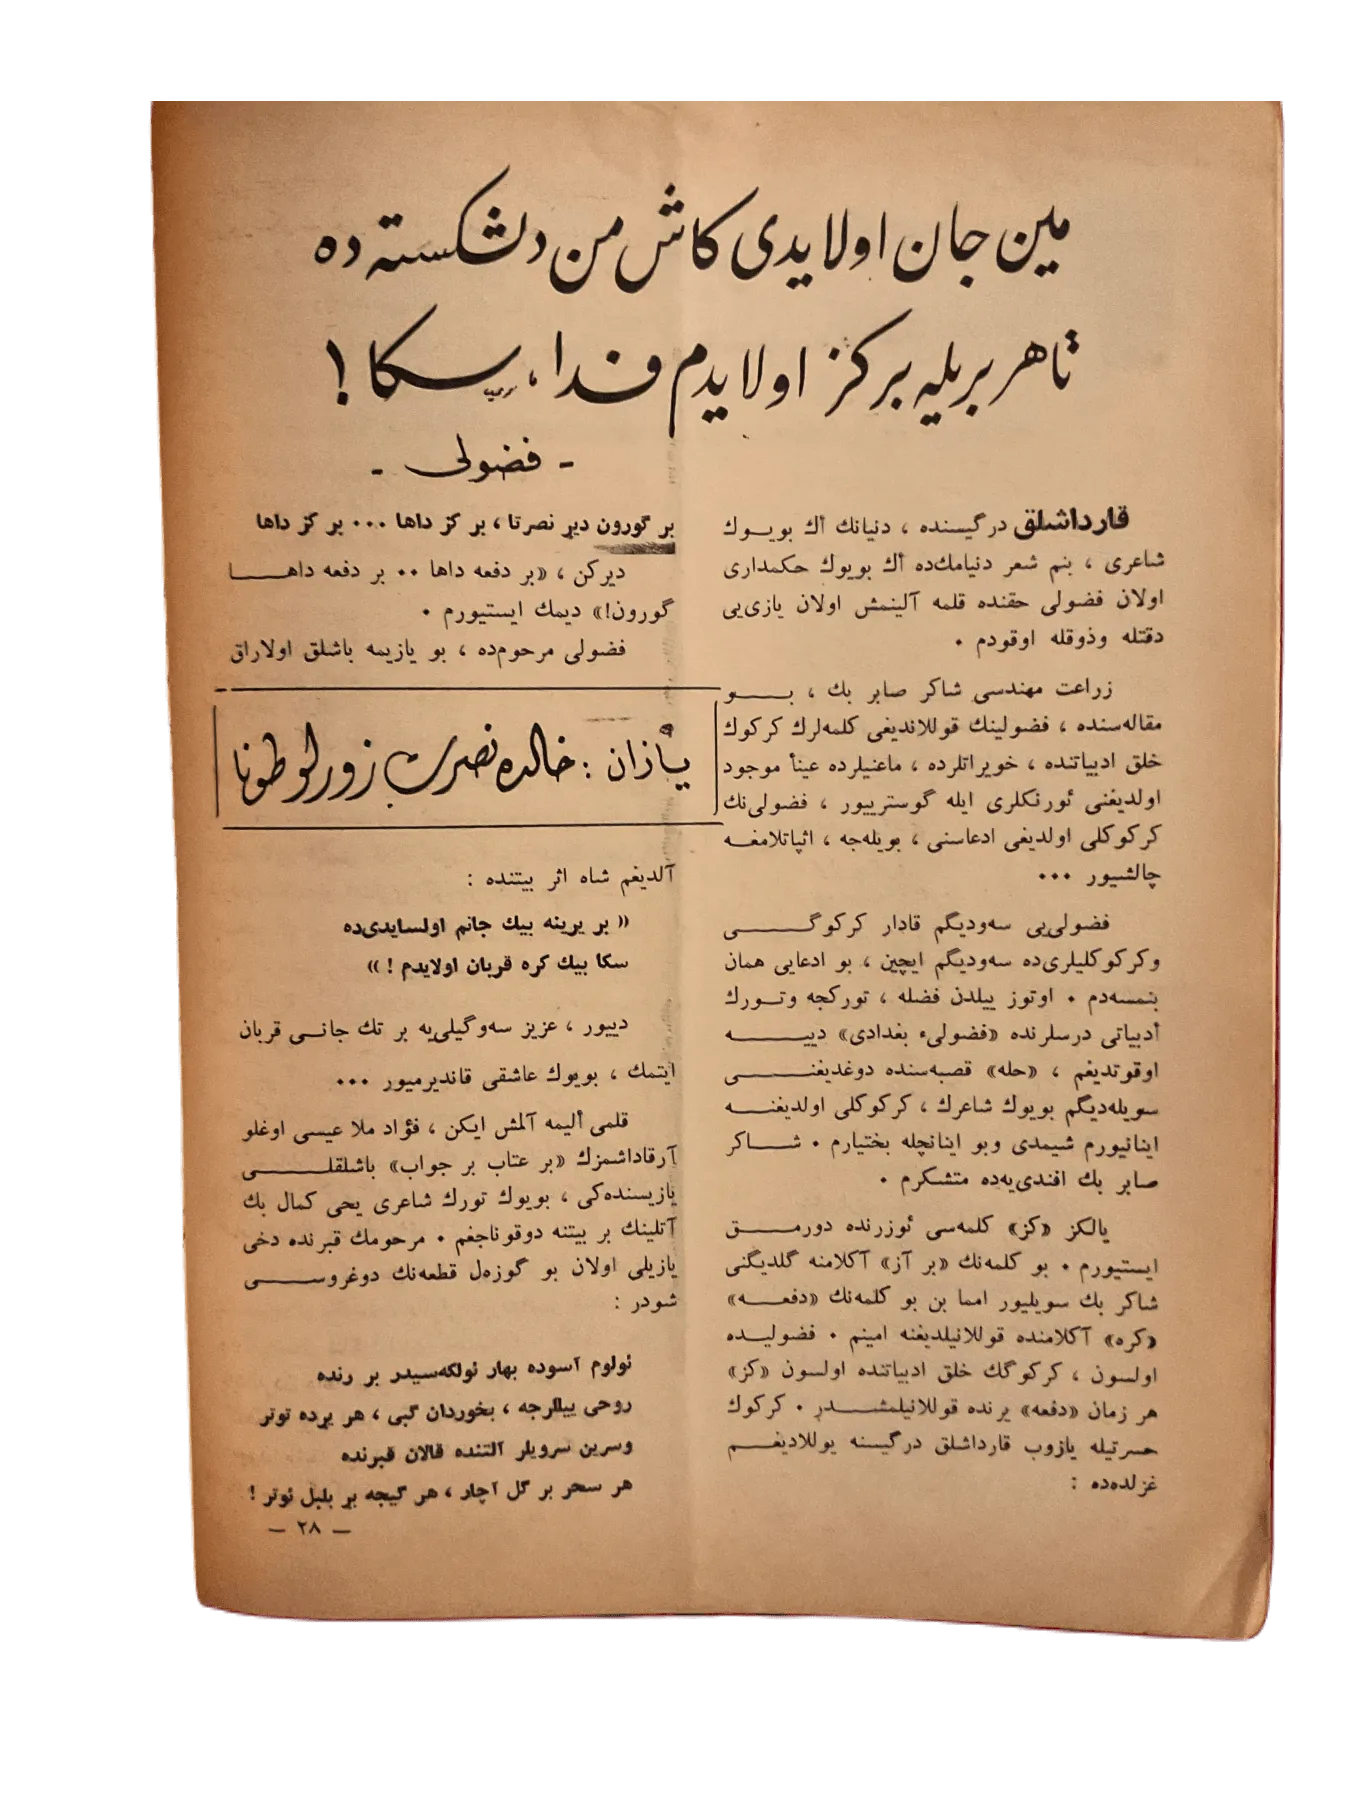 مين جان اولايدى كاش من دلشكسته ده
تا هر بريله بركز اولايدم فدا ، سكا !
- فضولى -
قارداشلق درگيسنده ، دنيانك أك بويوك
شاعرى ، بنم شعر دنيامك‌ده أك بويوك حكمدارى
اولان فضولى حقنده قلمه آلينمش اولان يازى‌يى
دقتله وذوقله اوقودم ٠
زراعت مهندسى شاكر صابر بك ، بو
مقاله‌سنده ، فضولينك قوللانديغى كلمه‌لرك كركوك
خلق ادبياتنده ، خويراتلرده ، ماعنيلرده عينأ موجود
اولديغنى ئورنكلرى ايله گوسترييور ، فضولى‌نك
كركوكلى اولديغى ادعاسنى ، بويله‌جه ، اثپاتلامغه
چالشيور ٠٠٠
فضولى‌يى سه‌وديگم قادار كركوگى
وكركوكليلرى‌ده سه‌وديگم ايچين ، بو ادعايى همان
بنمسه‌دم ٠ اوتوز ييلدن فضله ، توركجه وتورك
أدبياتى درسلرنده «فضولىء بغدادى» دييه
اوقوتديغم ، «حله» قصبه‌سنده دوغديغنى
سويله‌ديگم بويوك شاعرك ، كركوكلى اولديغنه
اينانيورم شيمدى وبو اينانچله بختيارم ٠ شاكر
صابر بك افندى‌يه‌ده متشكرم ٠
يالكز «كز» كلمه‌سى ئوزرنده دورمق
ايستيورم ٠ بو كلمه‌نك «بر آز» آكلامنه گلديگنى
شاكر بك سويليور امما بن بو كلمه‌نك «دفعه»
«كره» آكلامنده قوللانيلديغنه امينم ٠ فضوليده
اولسون ، كركوگك خلق ادبياتنده اولسون «كز»
هر زمان «دفعه» يرنده قوللانيلمشدر ٠ كركوك
حسرتيله يازوب قارداشلق درگيسنه يوللاديغم
غزلده‌ده :
بر گورون دير نصرتا ، بر كز داها ٠٠٠ بر كز داها
ديركن ، «بر دفعه داها ٠٠ بر دفعه داها
گورون!» ديمك ايستيورم ٠
فضولى مرحوم‌ده ، بو يازيمه باشلق اولاراق
يأزان : خالده نصرت زورلوطونا
آلديغم شاه اثر بيتنده :
« بر يرينه بيك جانم اولسايدى‌ده
سكا بيك كره قربان اولايدم ! »
دييور ، عزيز سه‌وگيلى‌يه بر تك جانى قربان
ايتمك ، بويوك عاشقى قانديرميور ٠٠٠
قلمى أليمه آلمش ايكن ، فؤاد ملا عيسى اوغلو
آرقاداشمزك «بر عتاب بر جواب» باشلقلى
يازيسنده‌كى ، بويوك تورك شاعرى يحى كمال بك
آتلينك بر بيتنه دوقوناجغم ٠ مرحومك قبرنده دخى
يازيلى اولان بو گوزه‌ل قطعه‌نك دوغروسى
شودر :
ئولوم آسوده بهار ئولكه‌سيدر بر رنده
روحى ييللرجه ، بخوردان گبى ، هر يرده توتر
وسرين سرويلر آلتنده قالان قبرنده
هر سحر بر گل آچار ، هر گيجه بر بلبل ئوتر !
— ٢٨ —